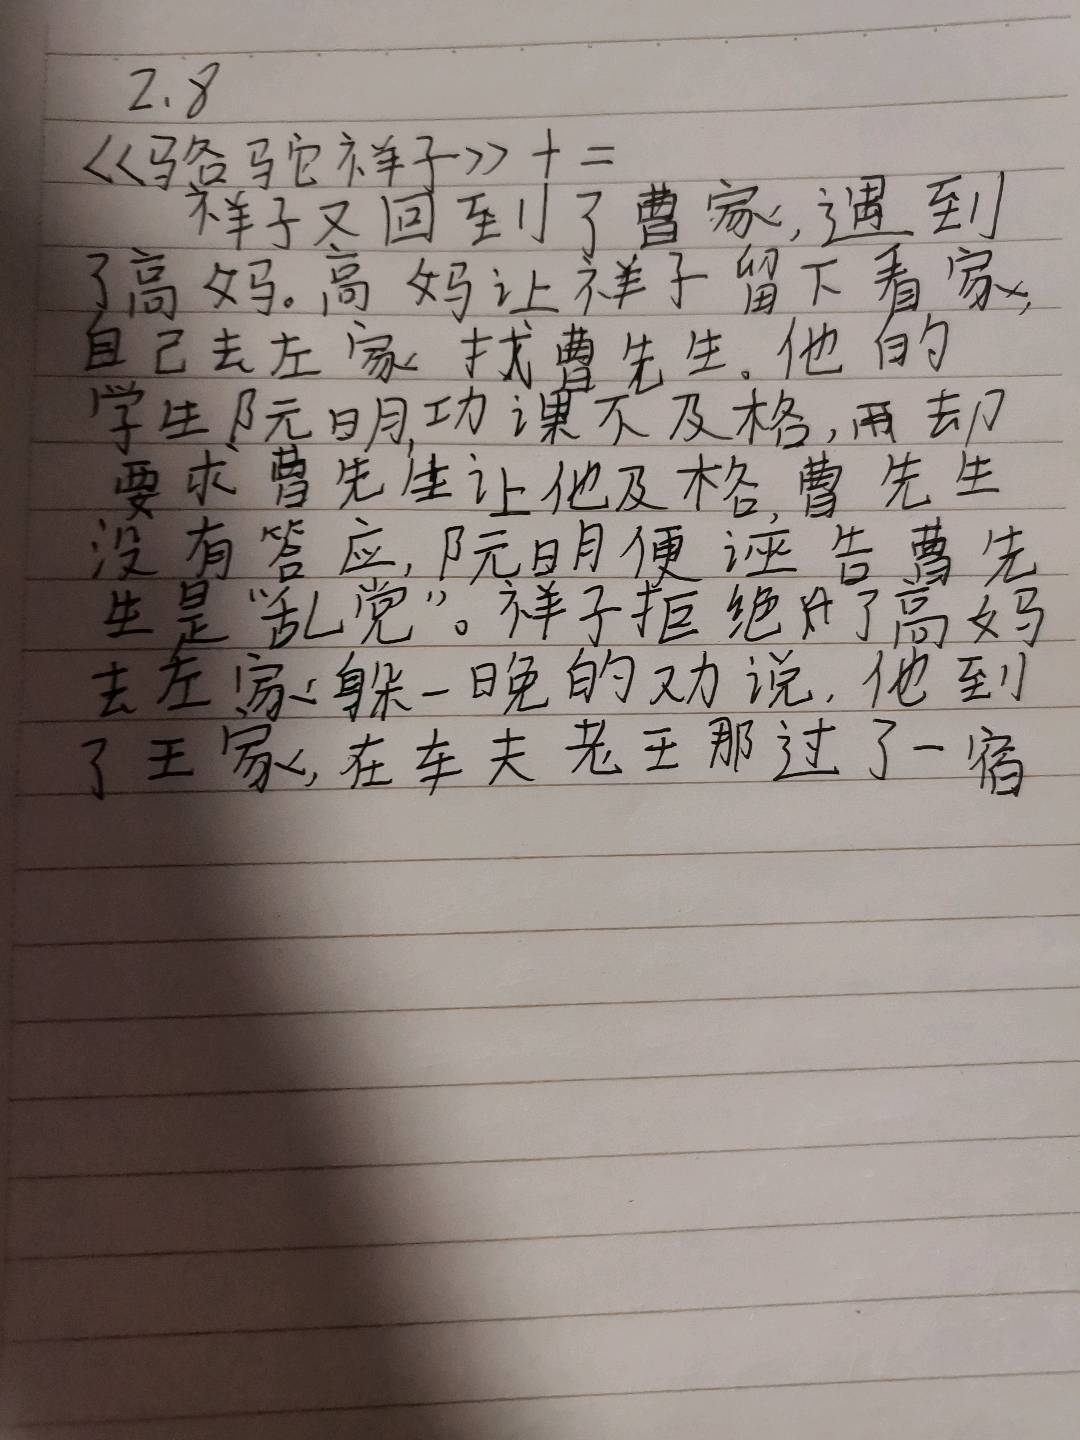 2.8
《骆驼祥子》十二
祥子又回到了曹家,遇到
了高妈。高妈让祥子留下看家,
自己去左家找曹先生。他的
学生阮明,功课不及格,却
要求曹先生让他及格,曹先生
没有答应,阮明便诬告曹先
生是“乱党”。祥子拒绝了高妈
去左家躲一晚的劝说,他到
了王家,在车夫老王那过了一宿